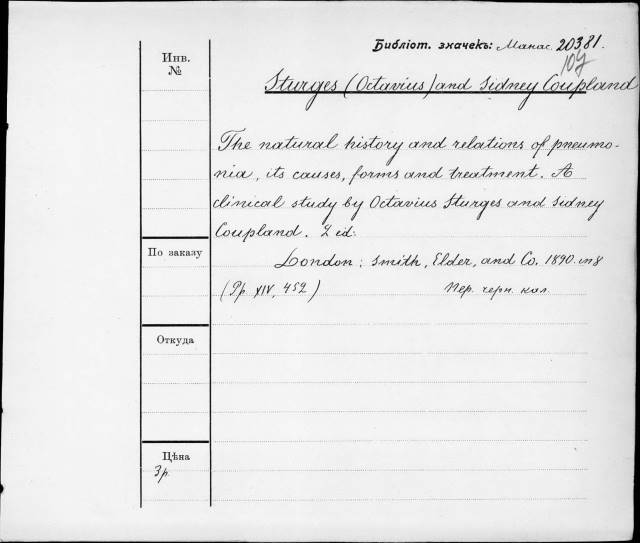 Библіот. значекъ: Манас. 20381.
Инв.
№
Sturges (Octavius) and Sidney Coupland
The natural history and relations of pneumo-
nia, its causes, forms and treatment. A
clinical study by Octavius Sturges and Sidney
Coupland. 2 ed:
По заказу
London: Smith, Elder, and Co. 1890. in 8
(Pp. XIV, 452)
Пер. черн. кол.
Откуда
Цѣна
3 р.